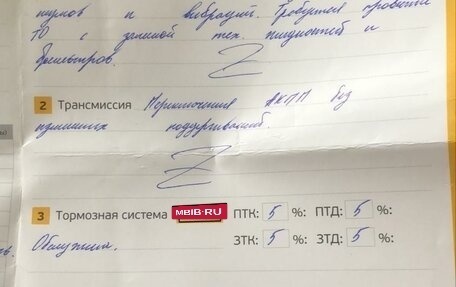 шумов и вибраций. Требуется провести
ТО с заменой тех. жидкостей и
фильтров.
2 Трансмиссия Переключения АКПП без
излишних подёргиваний.
3 Тормозная система MBIB.RU ПТК: 5 %: ПТД: 5 %:
Обслужена. ЗТК: 5 %: ЗТД: 5 %: